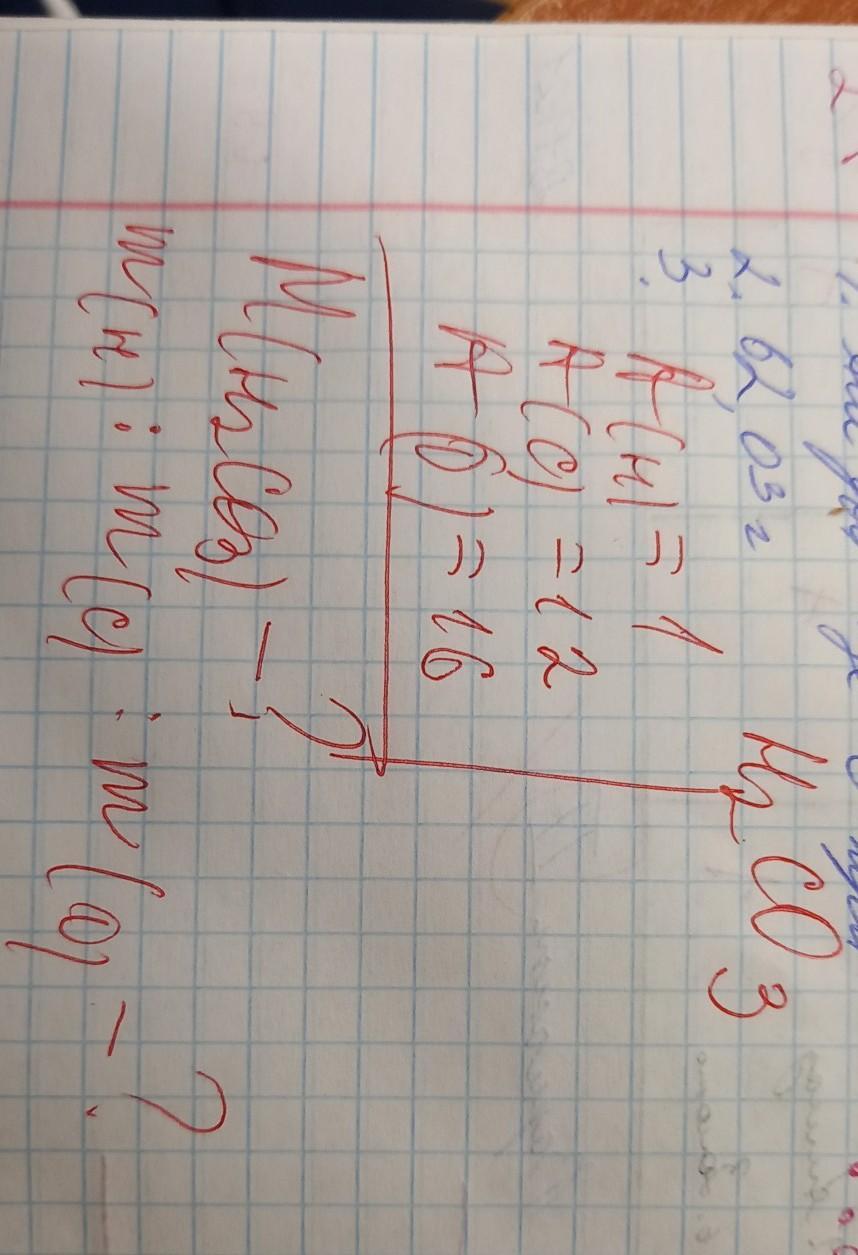 2. 62,03 г
H₂CO₃
3.
A(H) = 1
A(C) = 12
A(O) = 16
M(H₂CO₃) - ?
m(H) : m(C) : m(O) - ?